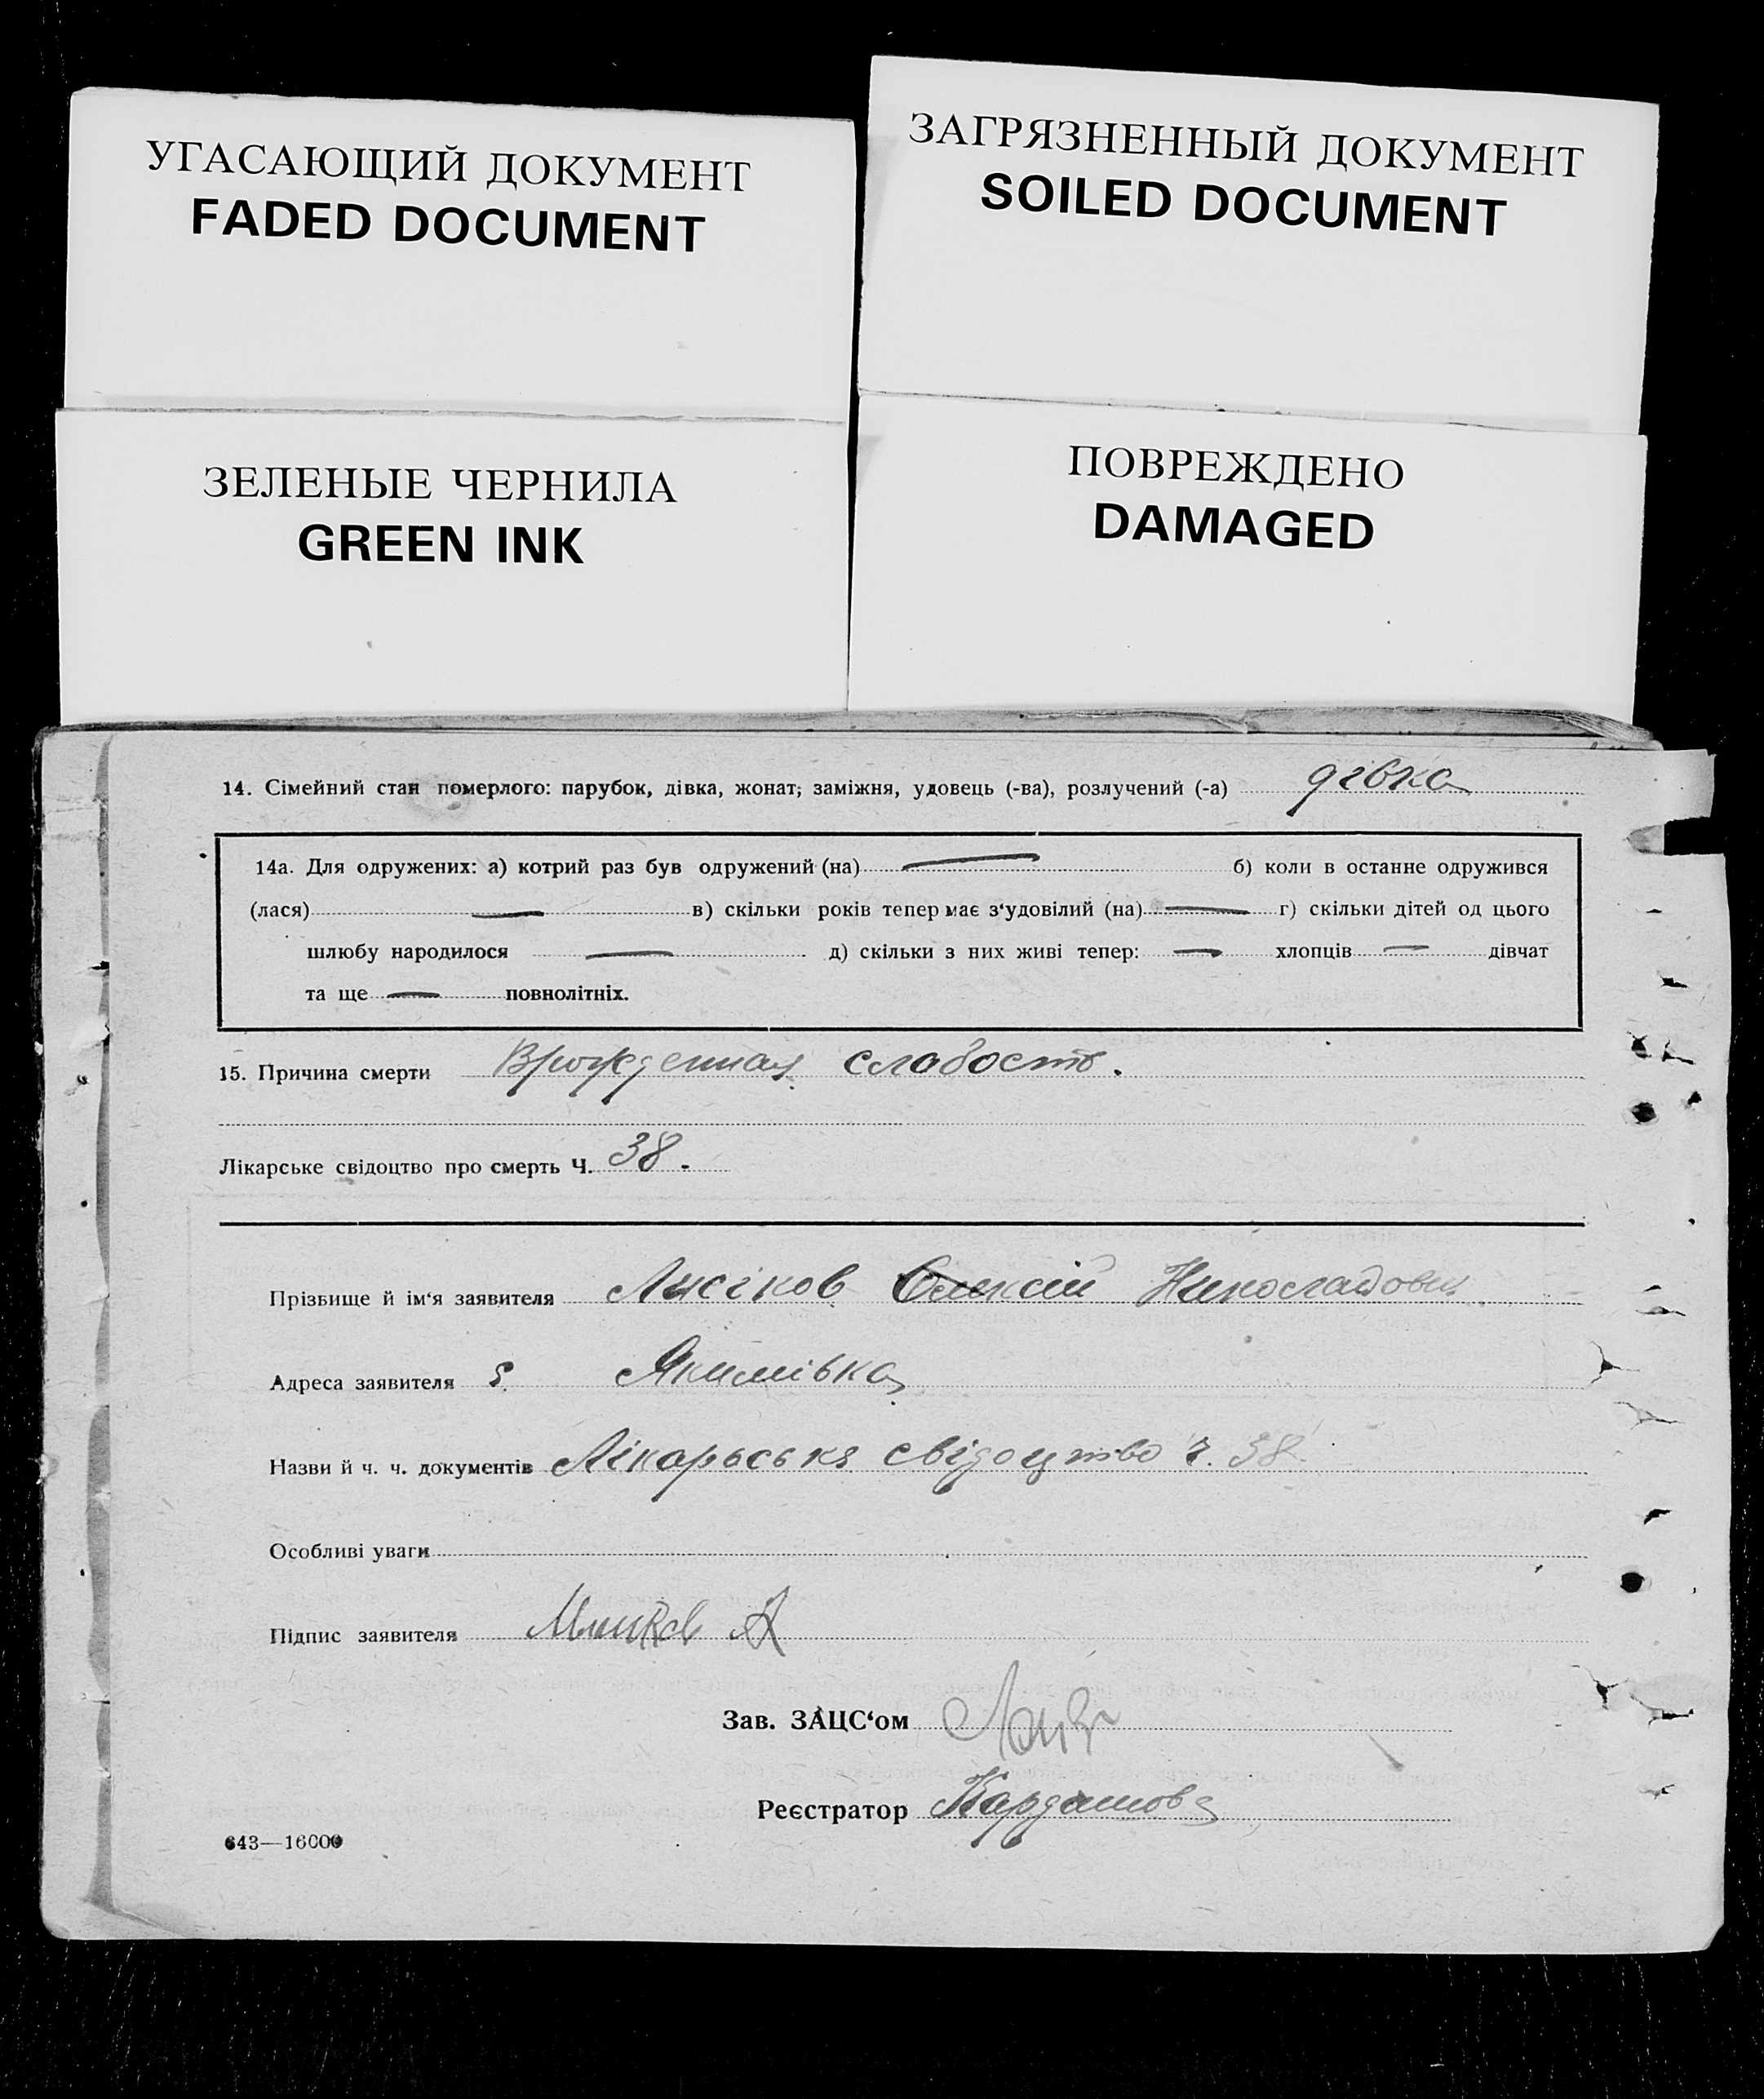 УГАСАЮЩИЙ ДОКУМЕНТ
FADED DOCUMENT
ЗАГРЯЗНЕННЫЙ ДОКУМЕНТ
SOILED DOCUMENT
ЗЕЛЕНЫЕ ЧЕРНИЛА
GREEN INK
ПОВРЕЖДЕНО
DAMAGED
14. Сімейний стан померлого: парубок, дівка, жонат, заміжня, удовець (-ва), розлучений (-а) дівка
14а. Для одружених: а) котрий раз був одружений (на) — б) коли в останне одружився
(лася) — в) скільки років тепер має з‘удовілий (на) — г) скільки дітей од цього
шлюбу народилося — д) скільки з них живі тепер: — хлопців — дівчат
та ще — повнолітніх.
15. Причина смерти Врожденная слабость.
Лікарське свідоцтво про смерть Ч. 38.
Прізвище й ім‘я заявителя Лисіков Олексій
Адреса заявителя с. Якимівка
Назви й ч. ч. документів Лікарьське свідоцтво ч. 38.
Особливі уваги
Підпис заявителя
Зав. ЗАЦС‘ом
Реєстратор Кардашова
643—16000